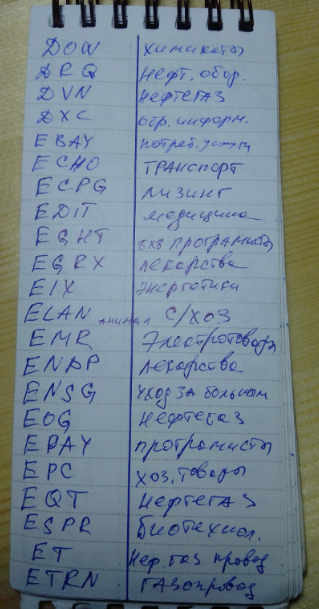 DOW химикаты
DRQ нефт. обор.
DVN нефтегаз
DXC обр. информ.
EBAY потреб. услуги
ECHO ТРАНСПОРТ
ECPG лизинг
EDIT медицина
EGHT программисты
EGRX лекарства
EIX энергетики
ELAN АНИМАЛ С/ХОЗ
EMR Электротовары
ENDP лекарства
ENSG уход за больным
EOG Нефтегаз
EPAY програмисты
EPC хоз. товары
EQT Нефтегаз
ESPR Биотехнол.
ET Неф. газ провод
ETRN ГАЗопровод